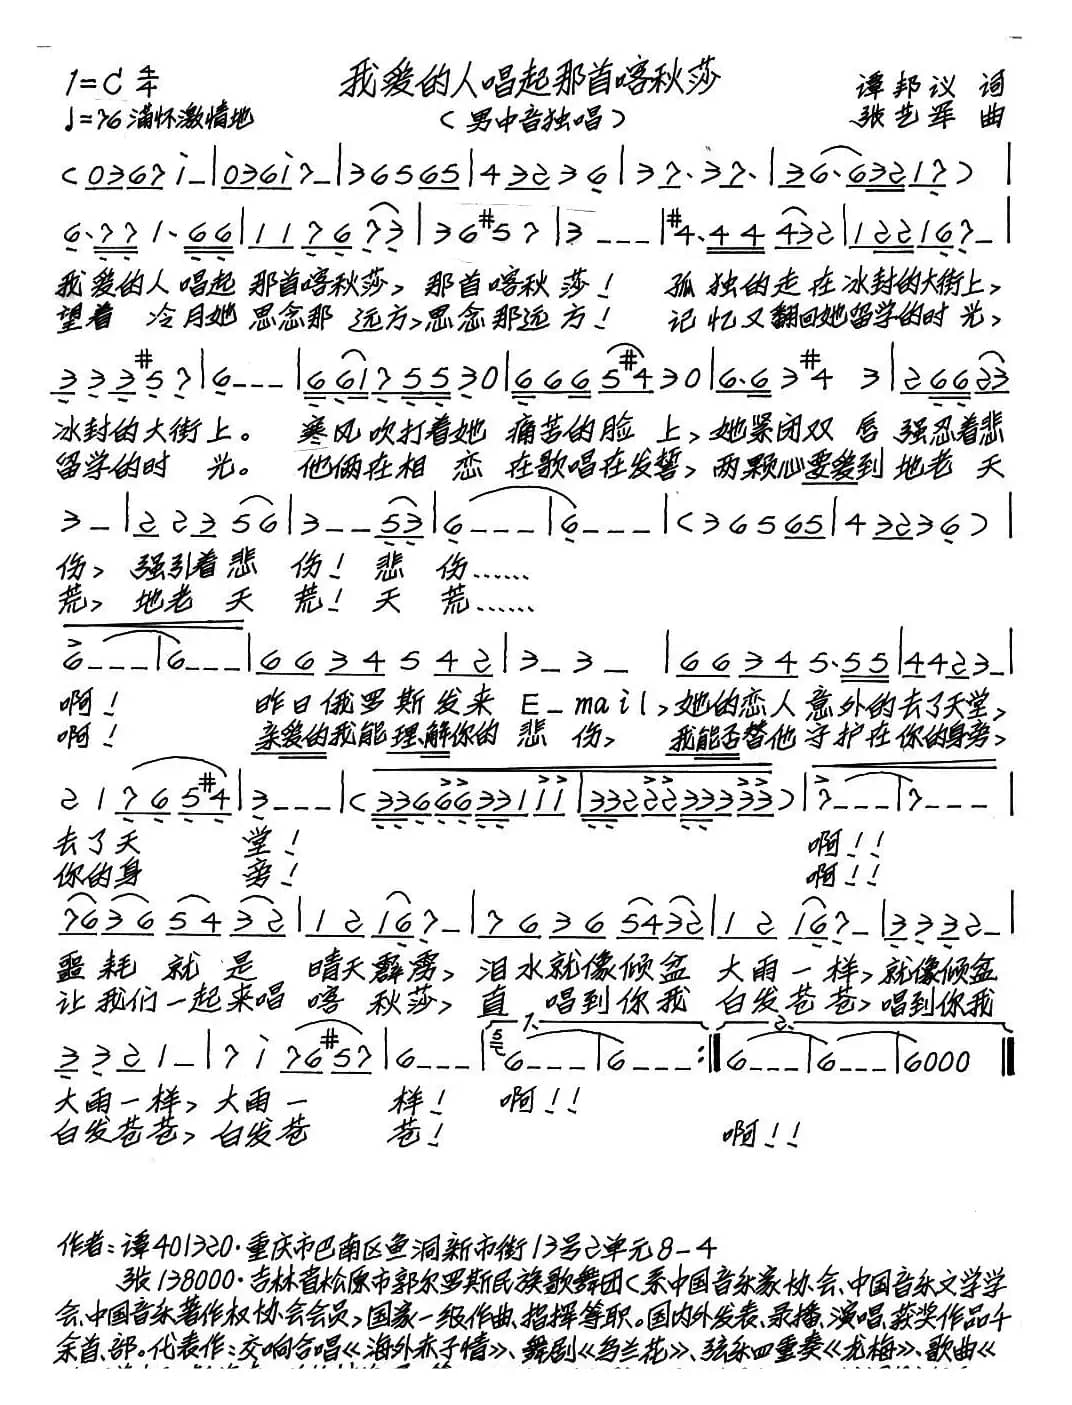 1=C 4/4 我爱的人唱起那首喀秋莎 谭邦议 词
♩=76 满怀激情地 （男中音独唱） 张艺军 曲
( 0 3 6 7 i - | 0 3 6 i 7 - | 3 6 5 6 5 6 5 | 4 3 2 3 6 | 3 7. 3 7. | 3 6. 6 3 2 1 7 ) |
6. 7 7 1. 6 6 | 1 1 7 6 7 3 | 3 6 #5 7 | 3 - - - | #4. 4 4 4 3 2 | 1 2 2 1 6 7 - |
我爱的人唱起 那首喀秋莎, 那首喀秋莎! 孤独的走在冰封的大街上,
望着 冷月她 思念那 远方, 思念那远方! 记忆又翻回她留学的时光,
3 3 3 #5 7 | 6 - - - | 6 6 1 7 5 5 3 0 | 6 6 6 5 #4 3 0 | 6. 6 3 #4 3 | 2 6 6 2 3
冰封的大街上。 寒风吹打着她 痛苦的脸上, 她紧闭双唇 强忍着悲
留学的时光。 他俩在相恋 在歌唱在发誓, 两颗心要爱到地老天
3 - | 2 2 3 5 6 | 3 - - 5 3 | 6 - - - | 6 - - - | ( 3 6 5 6 5 | 4 3 2 3 6 ) |
伤, 强引着悲伤! 悲伤……
荒, 地老天荒! 天荒……
6 - - - | 6 - - - | 6 6 3 4 5 4 2 | 3 - 3 - | 6 6 3 4 5. 5 5 | 4 4 2 3 - |
啊! 昨日俄罗斯发来 E-mail, 她的恋人意外的去了天堂,
啊! 亲爱的我能理解你的悲伤, 我能否替他守护在你的身旁,
2 1 7 6 5 #4 | 3 - - - | ( 3 3 6 6 6 3 3 1 i i | 3 3 2 2 2 3 3 3 3 3 ) | 7 - - - | 7 - - - |
去了天堂! 啊!!
你的身旁! 啊!!
7 6 3 6 5 4 3 2 | 1 2 1 6 7 - | 7 6 3 6 5 4 3 2 | 1 2 1 6 7 - | 3 3 3 2 - |
噩耗就是 晴天霹雳, 泪水就像倾盆 大雨一样, 就像倾盆
让我们一起来唱 喀秋莎, 直唱到你我 白发苍苍, 唱到你我
3 3 2 1 - | 7 i 7 6 #5 7 | 6 - - - | 1. 6 - - - | 6 - - - :‖ 2. 6 - - - | 6 - - - | 6 0 0 0 ‖
大雨一样, 大雨一样! 啊!!
白发苍苍, 白发苍苍! 啊!!
作者：谭401320·重庆市巴南区鱼洞新市街13号2单元8-4
张138000·吉林省松原市郭尔罗斯民族歌舞团（系中国音乐家协会、中国音乐文学学
会、中国音乐著作权协会会员）国家一级作曲、指挥等职。国内外发表、录播、演唱、获奖作品千
余首、部。代表作：交响合唱《海外赤子情》、舞剧《乌兰花》、弦乐四重奏《龙梅》、歌曲《